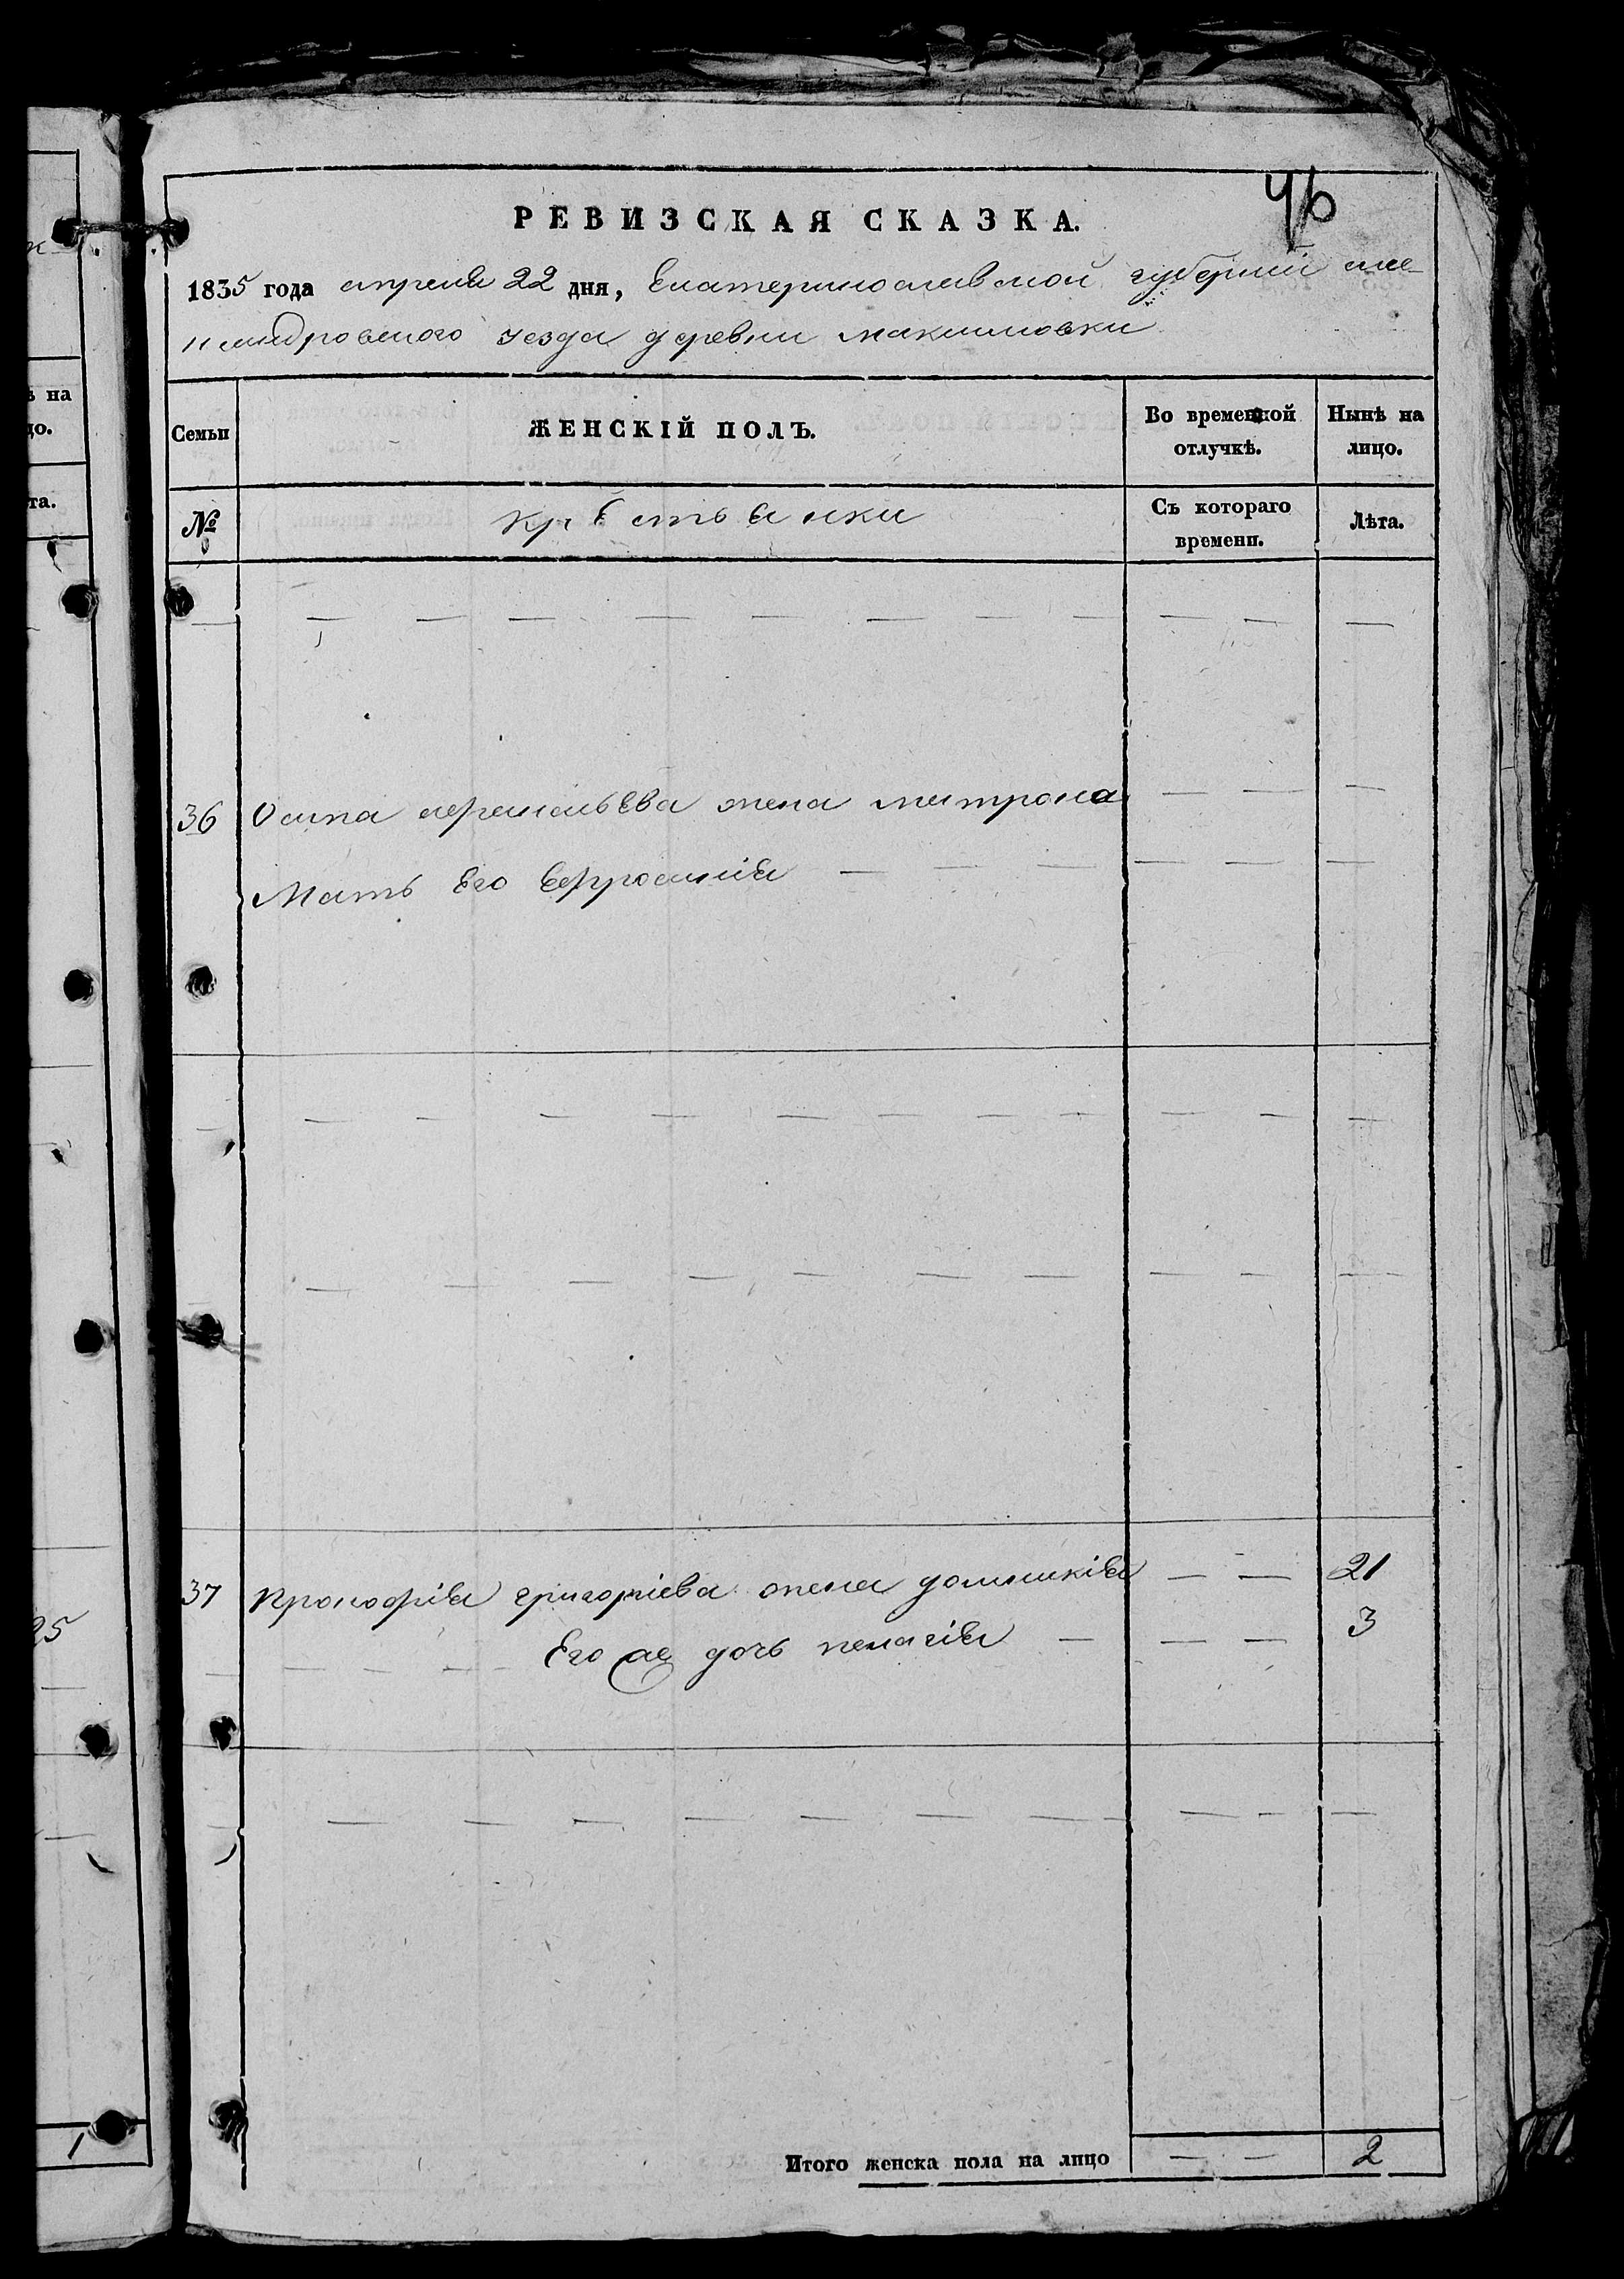 46
РЕВИЗСКАЯ СКАЗКА.
1835 года апреля 22 дня, Екатеринославской губернии але-
ксандровского уезда деревни максимовки
Семьи ЖЕНСКІЙ ПОЛЪ. Во временной отлучкѣ. Нынѣ на лицо.
№ крестьянки Съ котораго времени. Лѣта.
36 Осипа жена матрона — — —
Мать Его Ефросинія — — — — — —
37 прокофія григоріева жена домникія — — 21
Его же дочь пелагія — — — 3
Итого женска пола на лицо — — 2
ѣ на
цо.
та.
25
1